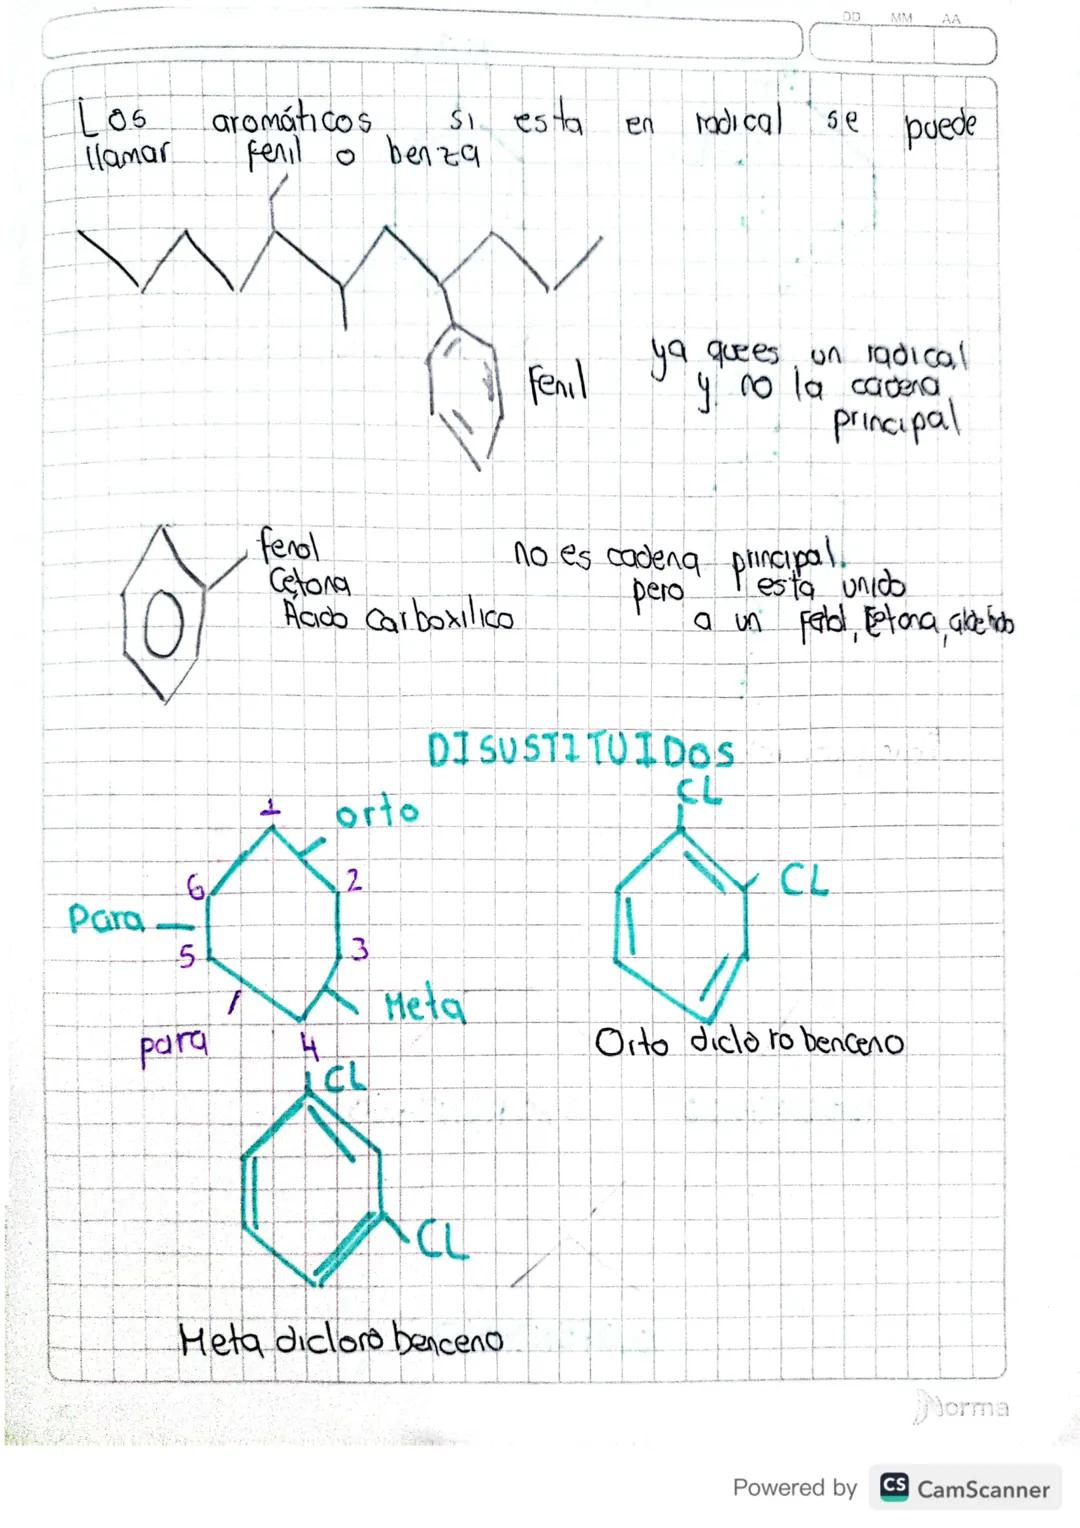 DD MM AA
Los aromáticos si esta en radical se puede
llamar fenil o benza
Fenil
ya que es un radical
y no la cadena
principal
fenol
Cetona
Ácido Carboxilico
no es cadena principal.
pero esta unido
a un Fenol, Cetona, aldehido
DISUSTITUIDOS
1
orto
6
2
Para
5
3
Meta
para
4
CL
CL
Orto dicloro benceno
CL
CL
Meta dicloro benceno
Norma
Powered by CS CamScanner